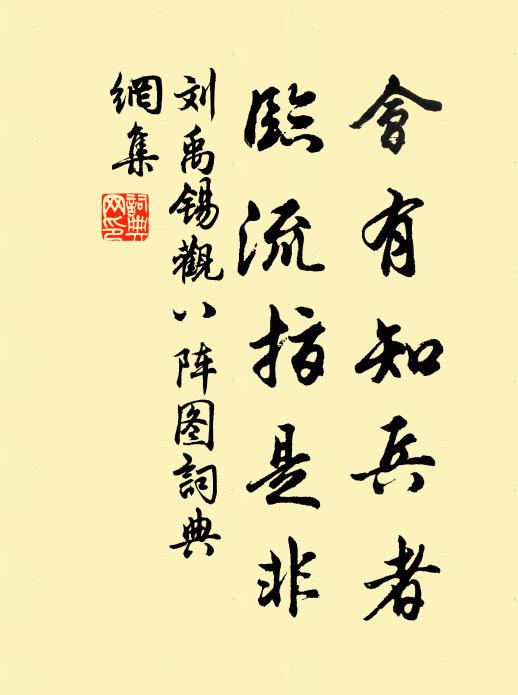 會有知兵者
臨流指是非
刘禹锡觀八阵图詞典
網集
詞典
网印